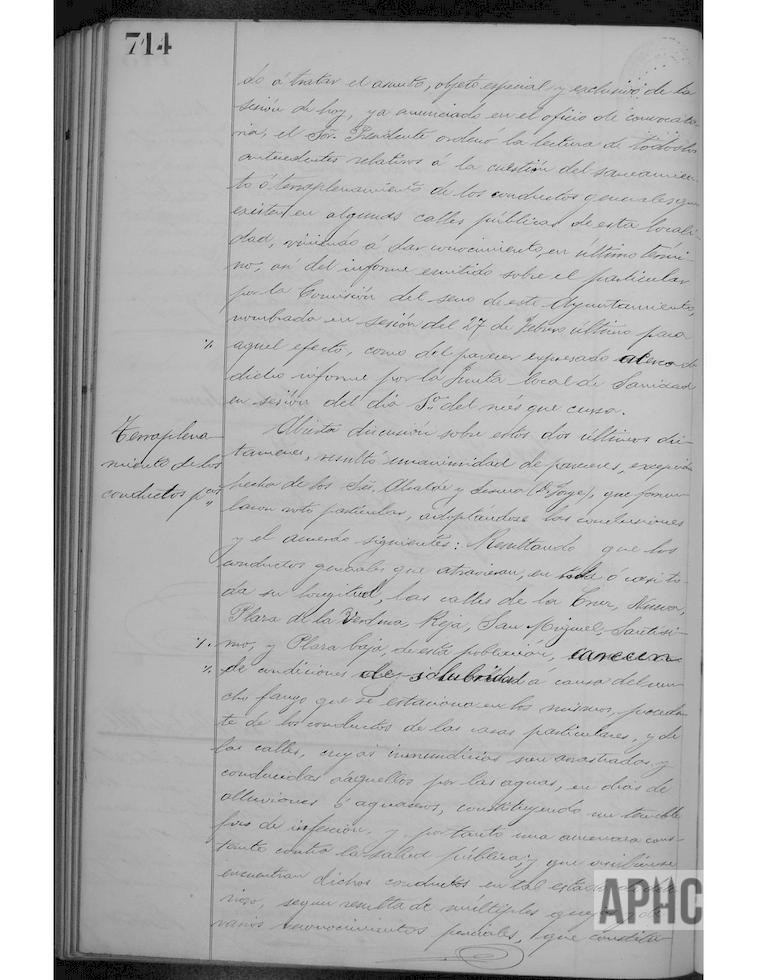 714
do á tratar el asunto, objeto especial y exclusivo de la
sesión de hoy, ya anunciado en el oficio de convocato-
ria, el Sor. Presidente ordenó la lectura de todos los
antecedentes relativos á la cuestión del saneamien-
to ó terraplenamiento de los conductos generales que
existen en algunas calles públicas de esta locali-
dad, viniendo á dar conocimiento, en último térmi-
no, así del informe emitido sobre el particular
por la Comisión del seno de este Ayuntamiento,
nombrada en sesión del 27 de Febrero último para
aquel efecto, como del parecer expresado acerca de
dicho informe por la Junta local de Sanidad
en sesión del día 5 del mes que cursa.
Terraplena-
miento de los
conductos
Abierta discusión sobre estos dos últimos dic-
támenes, resultó unanimidad de pareceres, excepción
hecha de los Sres. Alcalde y (D. Jorge), que formu-
laron voto particular, adoptándose las conclusiones
y el acuerdo siguientes: Resultando que los
conductos generales que atraviesan, en toda ó casi to-
da su longitud, las calles de la Cruz, Nueva,
Plaza de la Verdura, Roja, San Miguel, Santísi-
mo, y Plaza baja, de esta población, carecen
de condiciones de salubridad a causa del mu-
cho fango que se estaciona en los mismos, proceden-
te de los conductos de las casas particulares, y de
las calles, cuyas inmundicias son arrastradas y
conducidas á aquellos por las aguas, en días de
alluviones ó aguaceros, constituyendo un temible
foco de infección, y por tanto una amenaza cons-
tante contra la salud pública; y que
encuentran dichos conductos en tal estado
según resulta de múltiples quejas
varios reconocimientos periciales, que constitu-
APHC